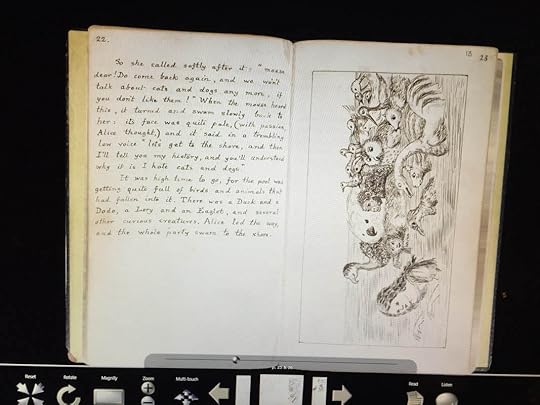 22.
So she called softly after it: "mouse
dear! Do come back again, and we won't
talk about cats and dogs any more, if
you don't like them!" When the mouse heard
this, it turned and swam slowly back to
her: its face was quite pale, (with passion,
Alice thought,) and it said in a trembling
low voice "let's get to the shore, and then
I'll tell you my history, and you'll understand
why it is I hate cats and dogs."
It was high time to go, for the pool was
getting quite full of birds and animals that
had fallen into it. There was a Duck and a
Dodo, a Lory and an Eaglet, and several
other curious creatures. Alice led the way,
and the whole party swam to the shore.
23
Reset
Rotate
Magnify
Zoom
Multi-touch
Read
Listen